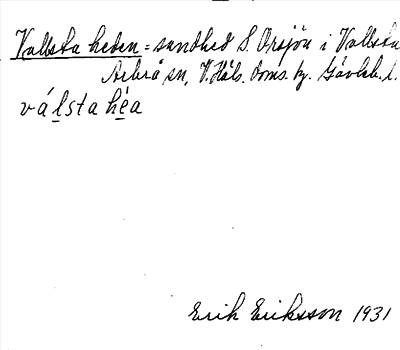 Vallsta heden = sandhed S. Orsjön i Vallsta
Arbrå sn, V. Häls. doms. tg. Gävleb. l.
válsta héa
Erik Eriksson 1931